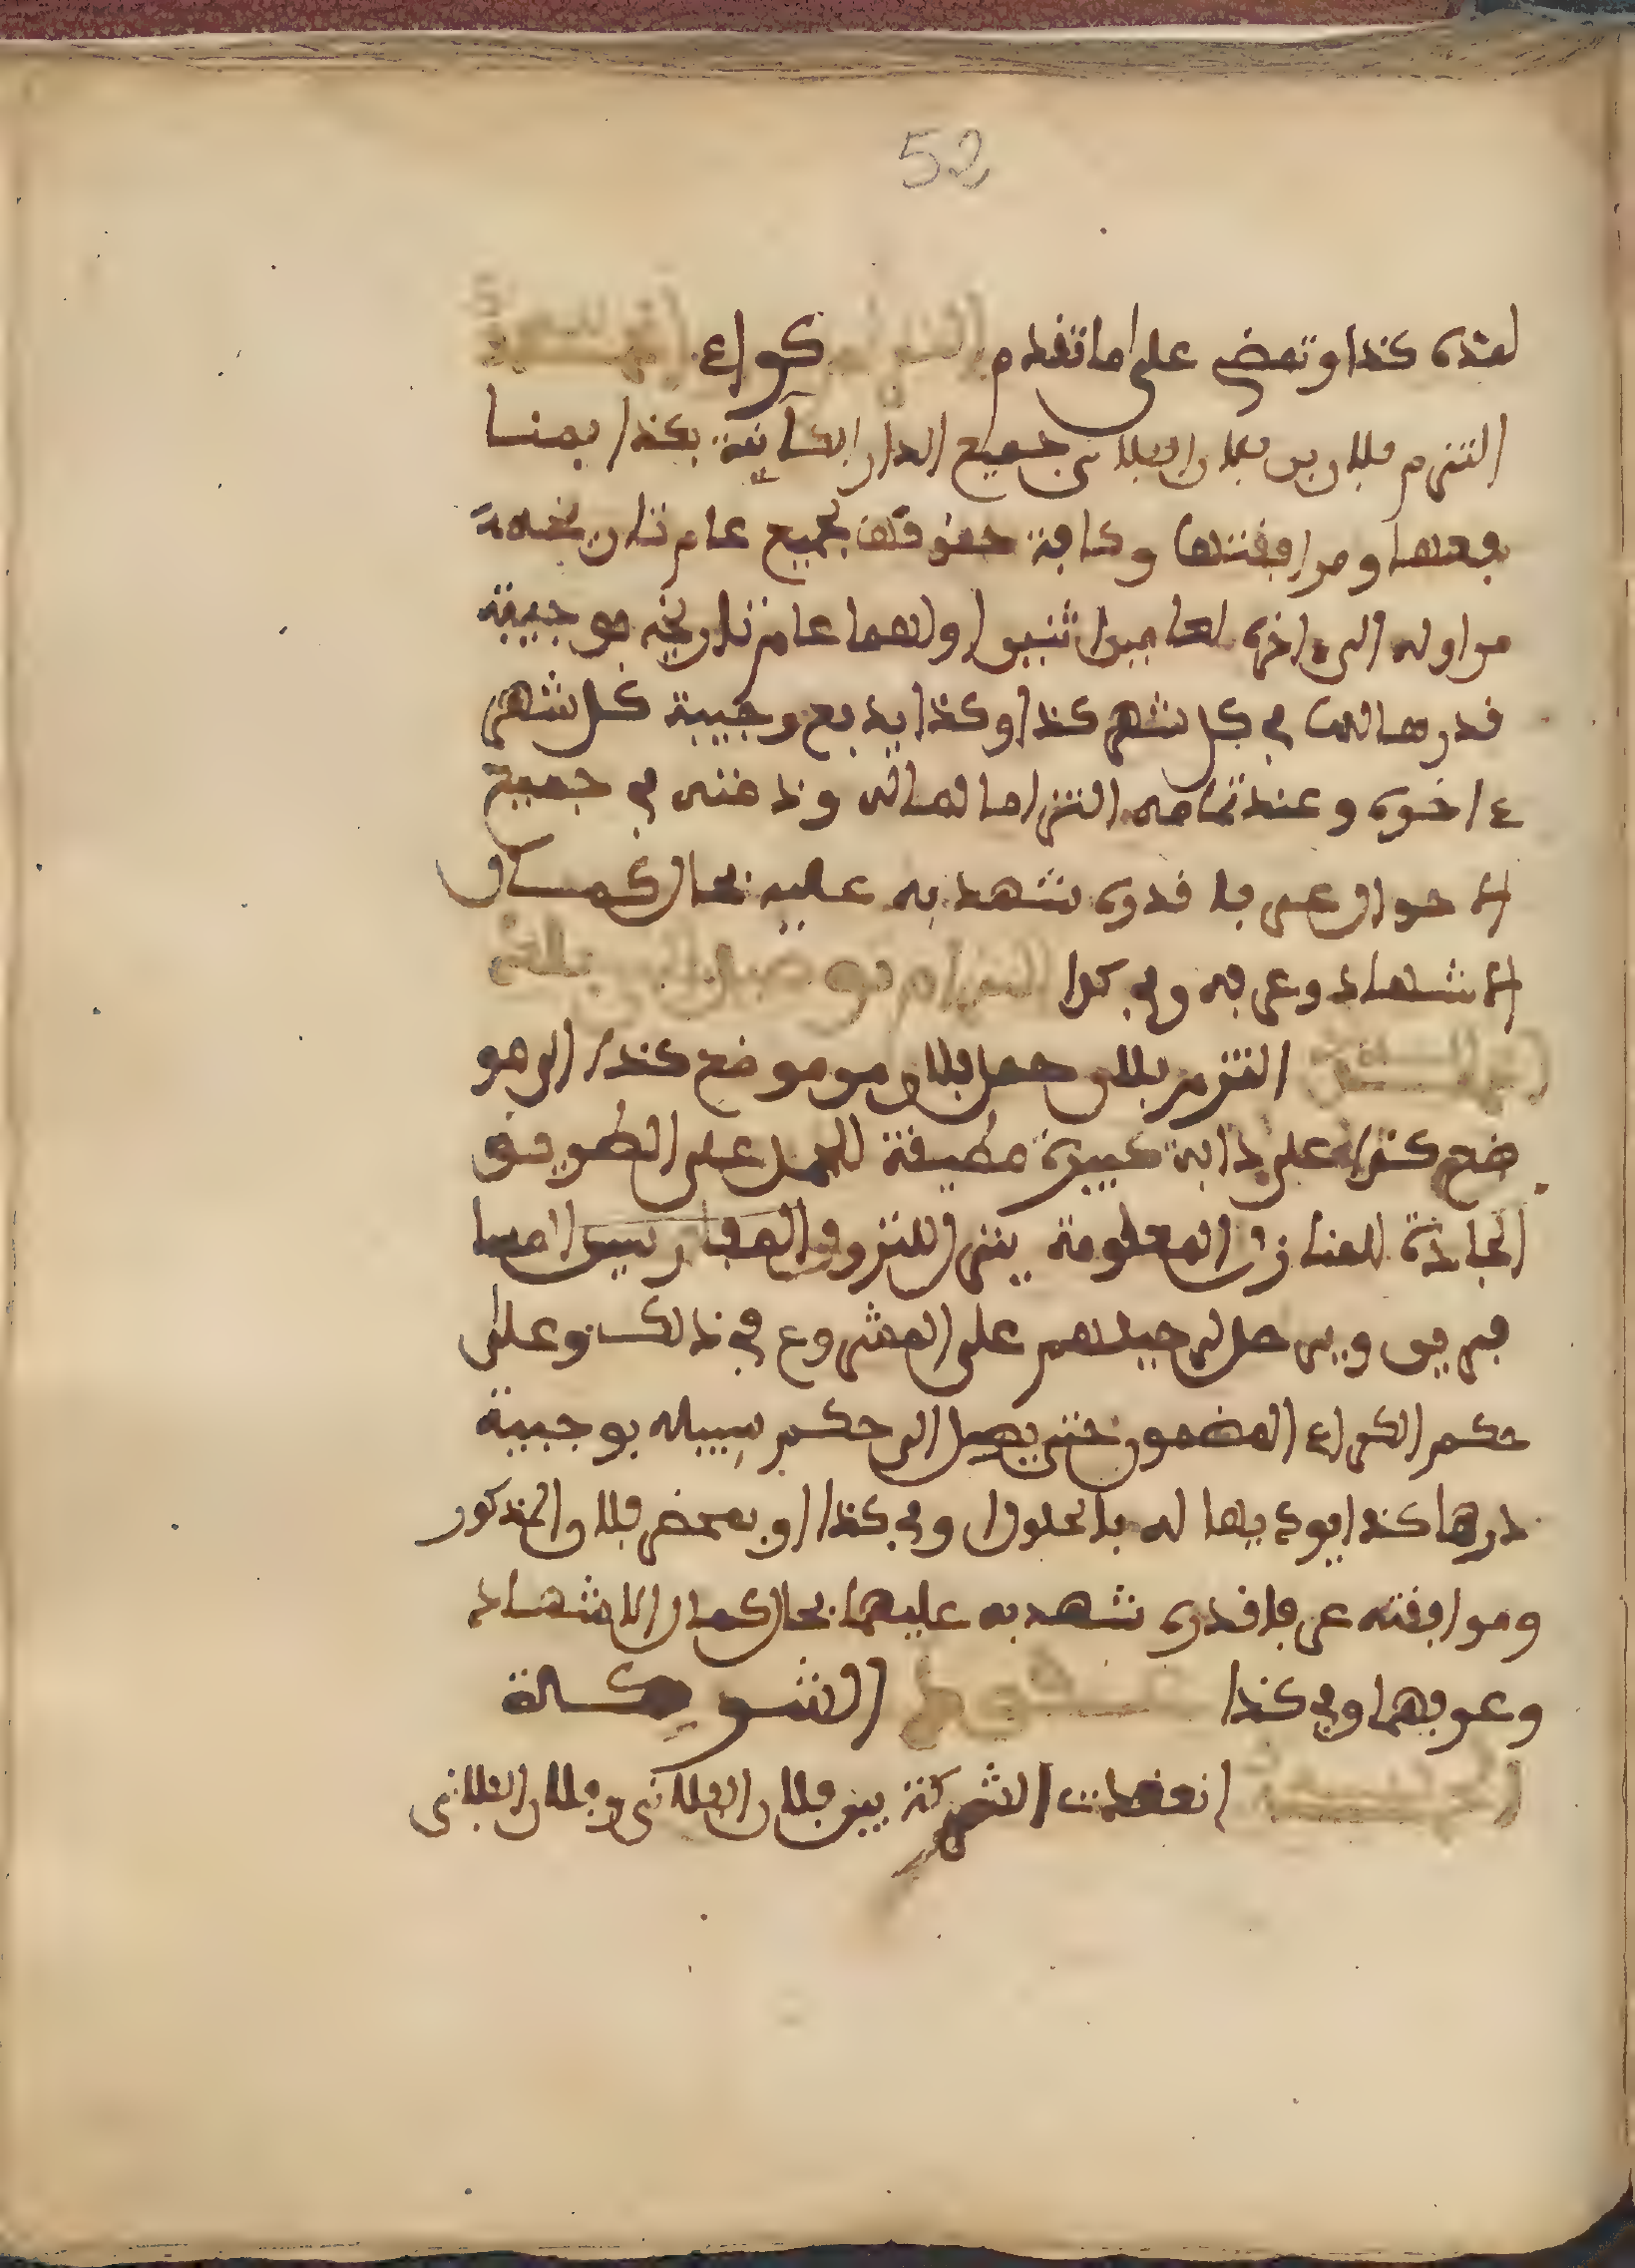 52
لمدة كذا وتمضي على ما تقدم التزام كراء
التزم فلان بن فلان الفلاني جميع الدار الكائنة بكذا بمنا
فعها ومرافقها وكافة حقوقها لجميع عام تاريخه
من اوله الى اخره لعامين اثنين اولهما عام تاريخه بوجيبة
قدرها لها في كل شهر كذا وكذا يدفع وجيبة كل شهر
ء اخره وعند تمامه التزاما لماله وذمته في جميع
الاحوال عرفا قدره شهد به عليه بحال كمال
الاشهاد وعرفه وفي كذا التزام
التزم فلان حمل فلان من موضع كذا الى مو
ضع كذا على دابة كبيرة مطيقة للحمل على الطريق
الجادة للمنازل المعلومة ينزل لنزول
فرين ويرحل لرحيلهم على المشروع في ذلك وعلى
حكم الكراء المضمون حتى يصل الى حكم سبيله بوجيبة
درها كذا يوديها له بالحلول وفي كذا او بمحضر فلان المذكور
وموافقته عرفا قدره شهد به عليهما بحال كمال الاشهاد
وعرفهما وفي كذا الشركة
انعقدت الشركة بين فلان الفلاني وفلان الفلاني